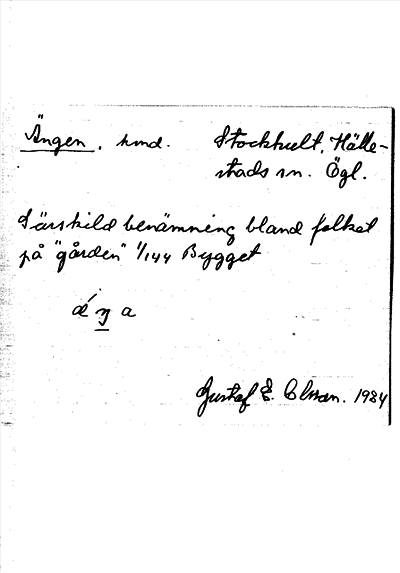 Ängen, hmd. Stockhult, Hälle-
stads sn. Ögl.
Särskild benämning bland folket
på "gården" 1/144 Bygget
áŋa
Gustaf E. Olsson. 1984